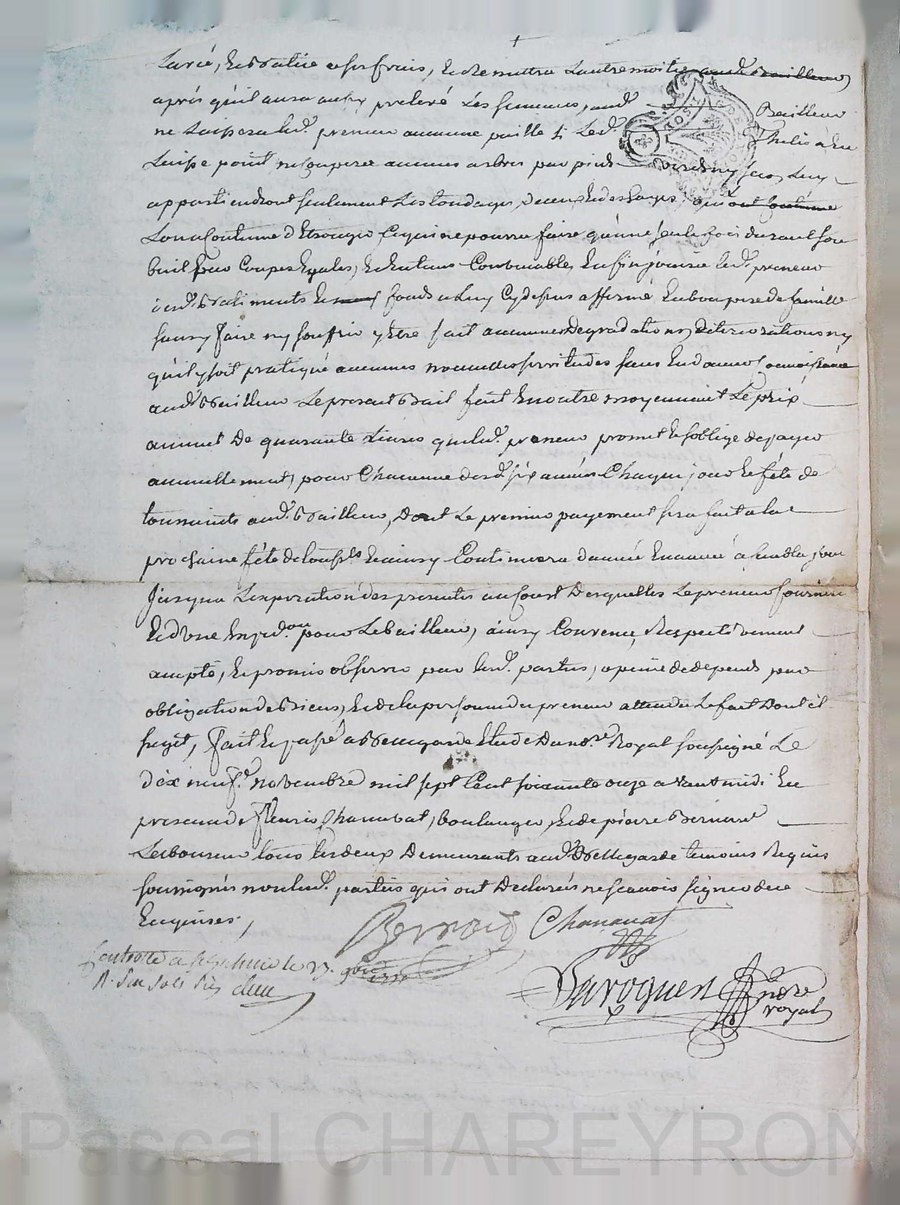 et battue a ses frais, Et Remettra Lautre moitié aud. Bailleur
aprés quil aura aussy prelevé Les semences, aud. Bailleur
ne Laissera led. preneur aucune paille
Laisse point ne Couper aucuns arbres par pieds
appartiendront seulement Les tondages
La Coutume faire qu'une seule fois durant son
bail Coupes Egales, Enfin jouira led. preneur
desd. Batiments Et fonds a Luy Cy dessus affermé En bon pere de famille
sans y faire ny souffrir y Etre fait aucunes Degradations, Deteriorations ny
qu'il y soit pratiqué aucunes nouvelles servitudes sans En donner Connoissance
aud. Bailleur Le present Bail fait En outre moyennant Le prix
annuel De quarante Livres que led. preneur promet Et soblige de payer
annuellement, pour Chacune desd. six années Chaque jour Et féte de
toussaints aud. Bailleur, Dont Le premier payement sera fait a la
prochaine féte de touss.ts Et ainsy Continuera dannée En année a semblable jour
jusqua Lexpiration des presentes au Cout Desquelles Le preneur fournira
Et Dune Exped.on pour Le bailleur, ainsy Convenu, Respectivement
accepté, Et promis observer par lesd. parties, a peine de depends par
obligation de Biens, Et de la personne du preneur attendu Le fait Dont il
sagit, fait Et passé a Bellegarde Etude Du no.re Royal soussigné Le
dix neuf. novembre mil sept Cent soixante onze avant midi En
presence de fleurie Chanavat, boulanger, Et de pierre Bernard
Laboureur tous Les deux Demeurants aud. Bellegarde temoins Requis
soussignés non lesd. parties qui ont Declarés ne scavoir signer de ce
Enquises,
Bernard Chanavat
Controlé a le 23. 9bre 1771
R. sols
Baroquen no.re
royal
Pascal CHAREYRON